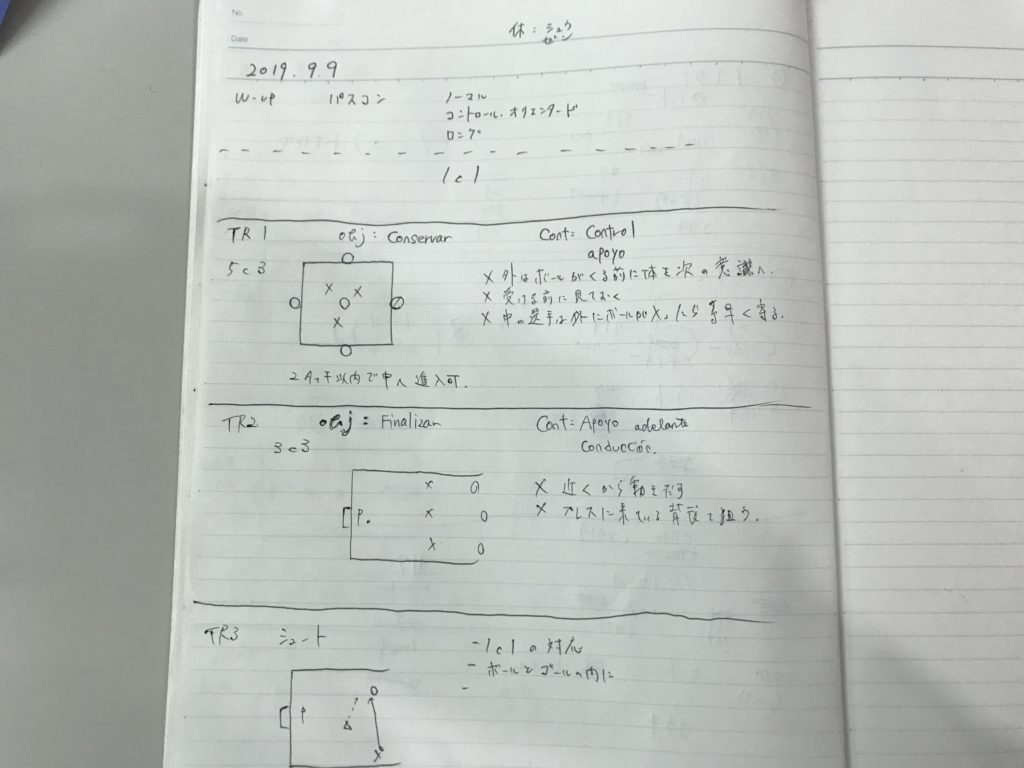 No.
Date
休: シュウ
ゼン
2019. 9. 9
W-up パスコン ノーマル
コントロール. オリエンタード
ロング
1c1
TR 1 obj: Conservar Cont: Control
apoyo
5c3
× 外はボールがくる前に体を次の意識へ.
× 受ける前に見ておく
× 中の選手は外にボールが入ったら 素早く寄る.
2タッチ以内で中へ進入可.
TR2 obj: Finalizar Cont: Apoyo adelante
3c3 Conducción.
× 近くから動きだす
× プレスに来ている背後を狙う.
P.
TR3 シュート
- 1c1の対応
- ボールとゴールの内に
-
P